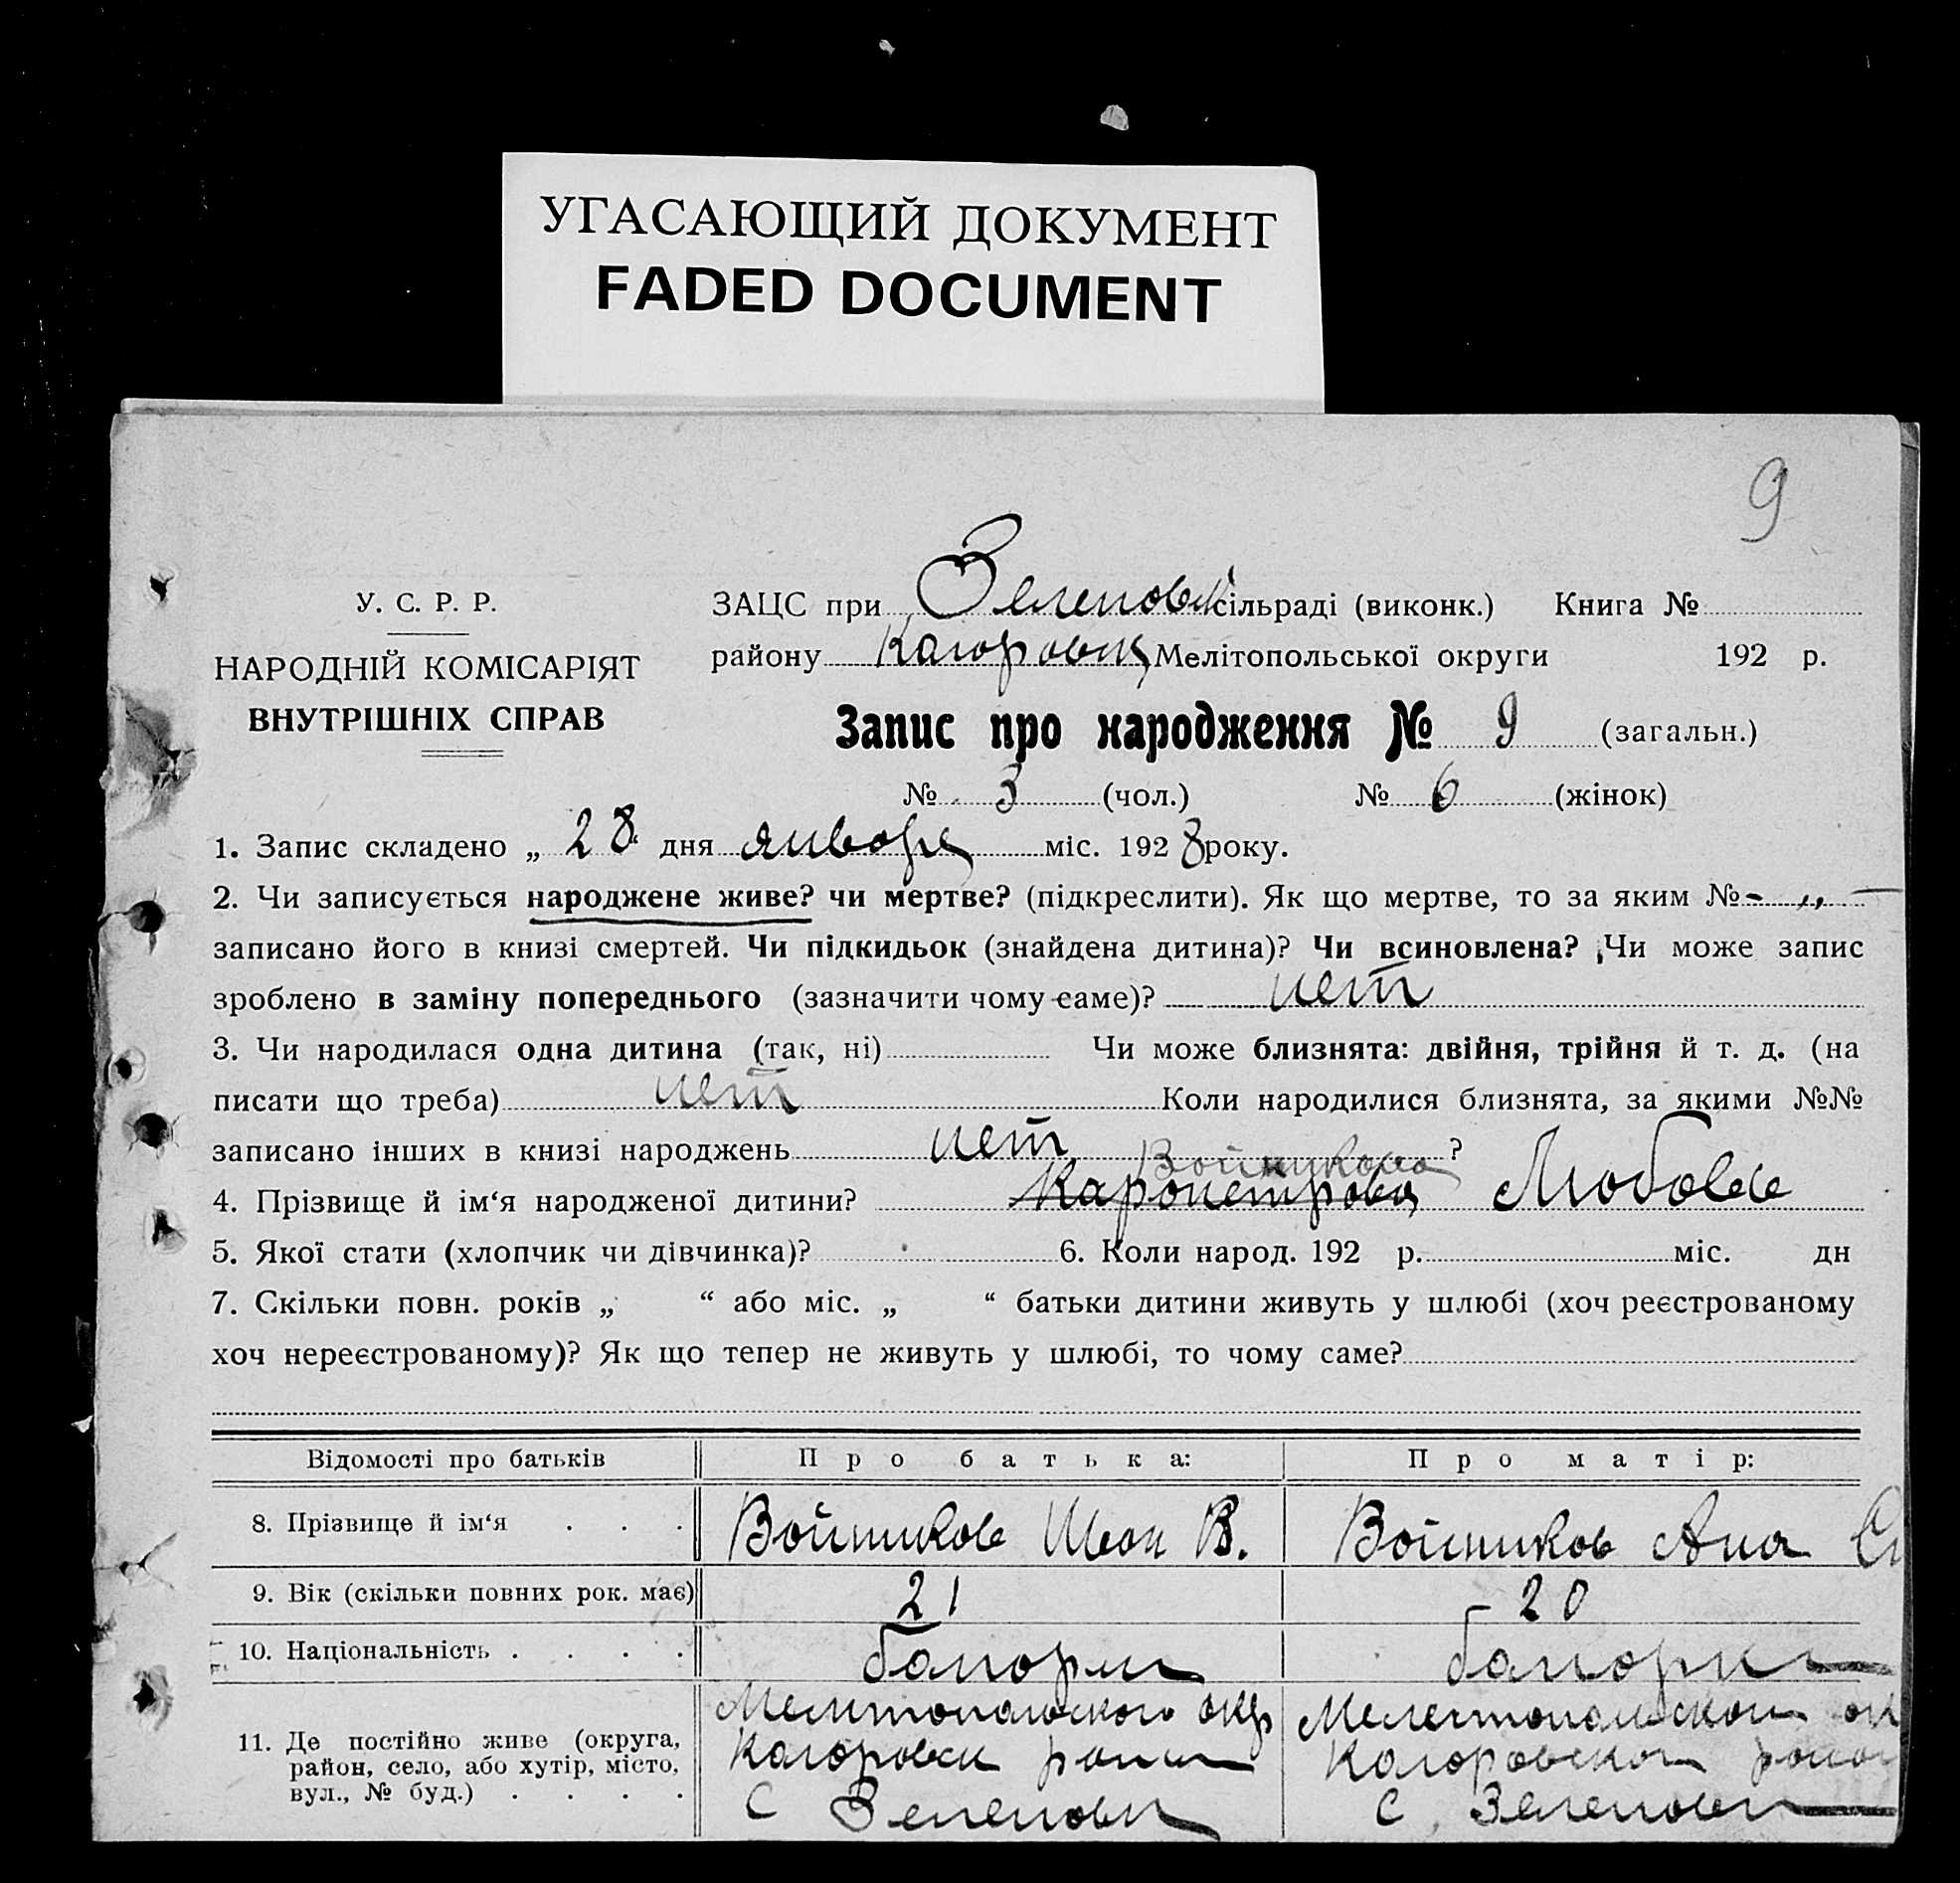 УГАСАЮЩИЙ ДОКУМЕНТ
FADED DOCUMENT
9
У. С. Р. Р.
НАРОДНІЙ КОМІСАРІЯТ
ВНУТРІШНІХ СПРАВ
ЗАЦС при Зеленовск сільраді (виконк.) Книга №
району Мелітопольської округи 192 р.
Запис про народження № 9 (загальн.)
№ 3 (чол.) № 6 (жінок)
1. Запис складено „ 28 дня января міс. 1928 року.
2. Чи записується народжене живе? чи мертве? (підкреслити). Як що мертве, то за яким № - „ -
записано його в книзі смертей. Чи підкидьок (знайдена дитина)? Чи всиновлена? Чи може запис
зроблено в заміну попереднього (зазначити чому саме)? нет
3. Чи народилася одна дитина (так, ні) Чи може близнята: двійня, трійня й т. д. (на
писати що треба) нет Коли народилися близнята, за якими №№
записано інших в книзі народжень нет ?
Войникова
4. Прізвище й ім‘я народженої дитини? Карапетрова Любовь
5. Якої стати (хлопчик чи дівчинка)? 6. Коли народ. 192 р. міс. дн
7. Скільки повн. років „ “ або міс. „ “ батьки дитини живуть у шлюбі (хоч реєстрованому
хоч нереєстрованому)? Як що тепер не живуть у шлюбі, то чому саме?
Відомості про батьків Про батька: Про матір:
8. Прізвище й ім‘я . . . Войников Иван В. Войников Ана
9. Вік (скільки повних рок. має) 21 20
10. Національність . . . . болгарин болгарка
11. Де постійно живе (округа,
район, село, або хутір, місто,
вул., № буд.) . . . .
Мелитопольского окр Мелетопольской ок
район
С Зеленовк С. Зеленовк